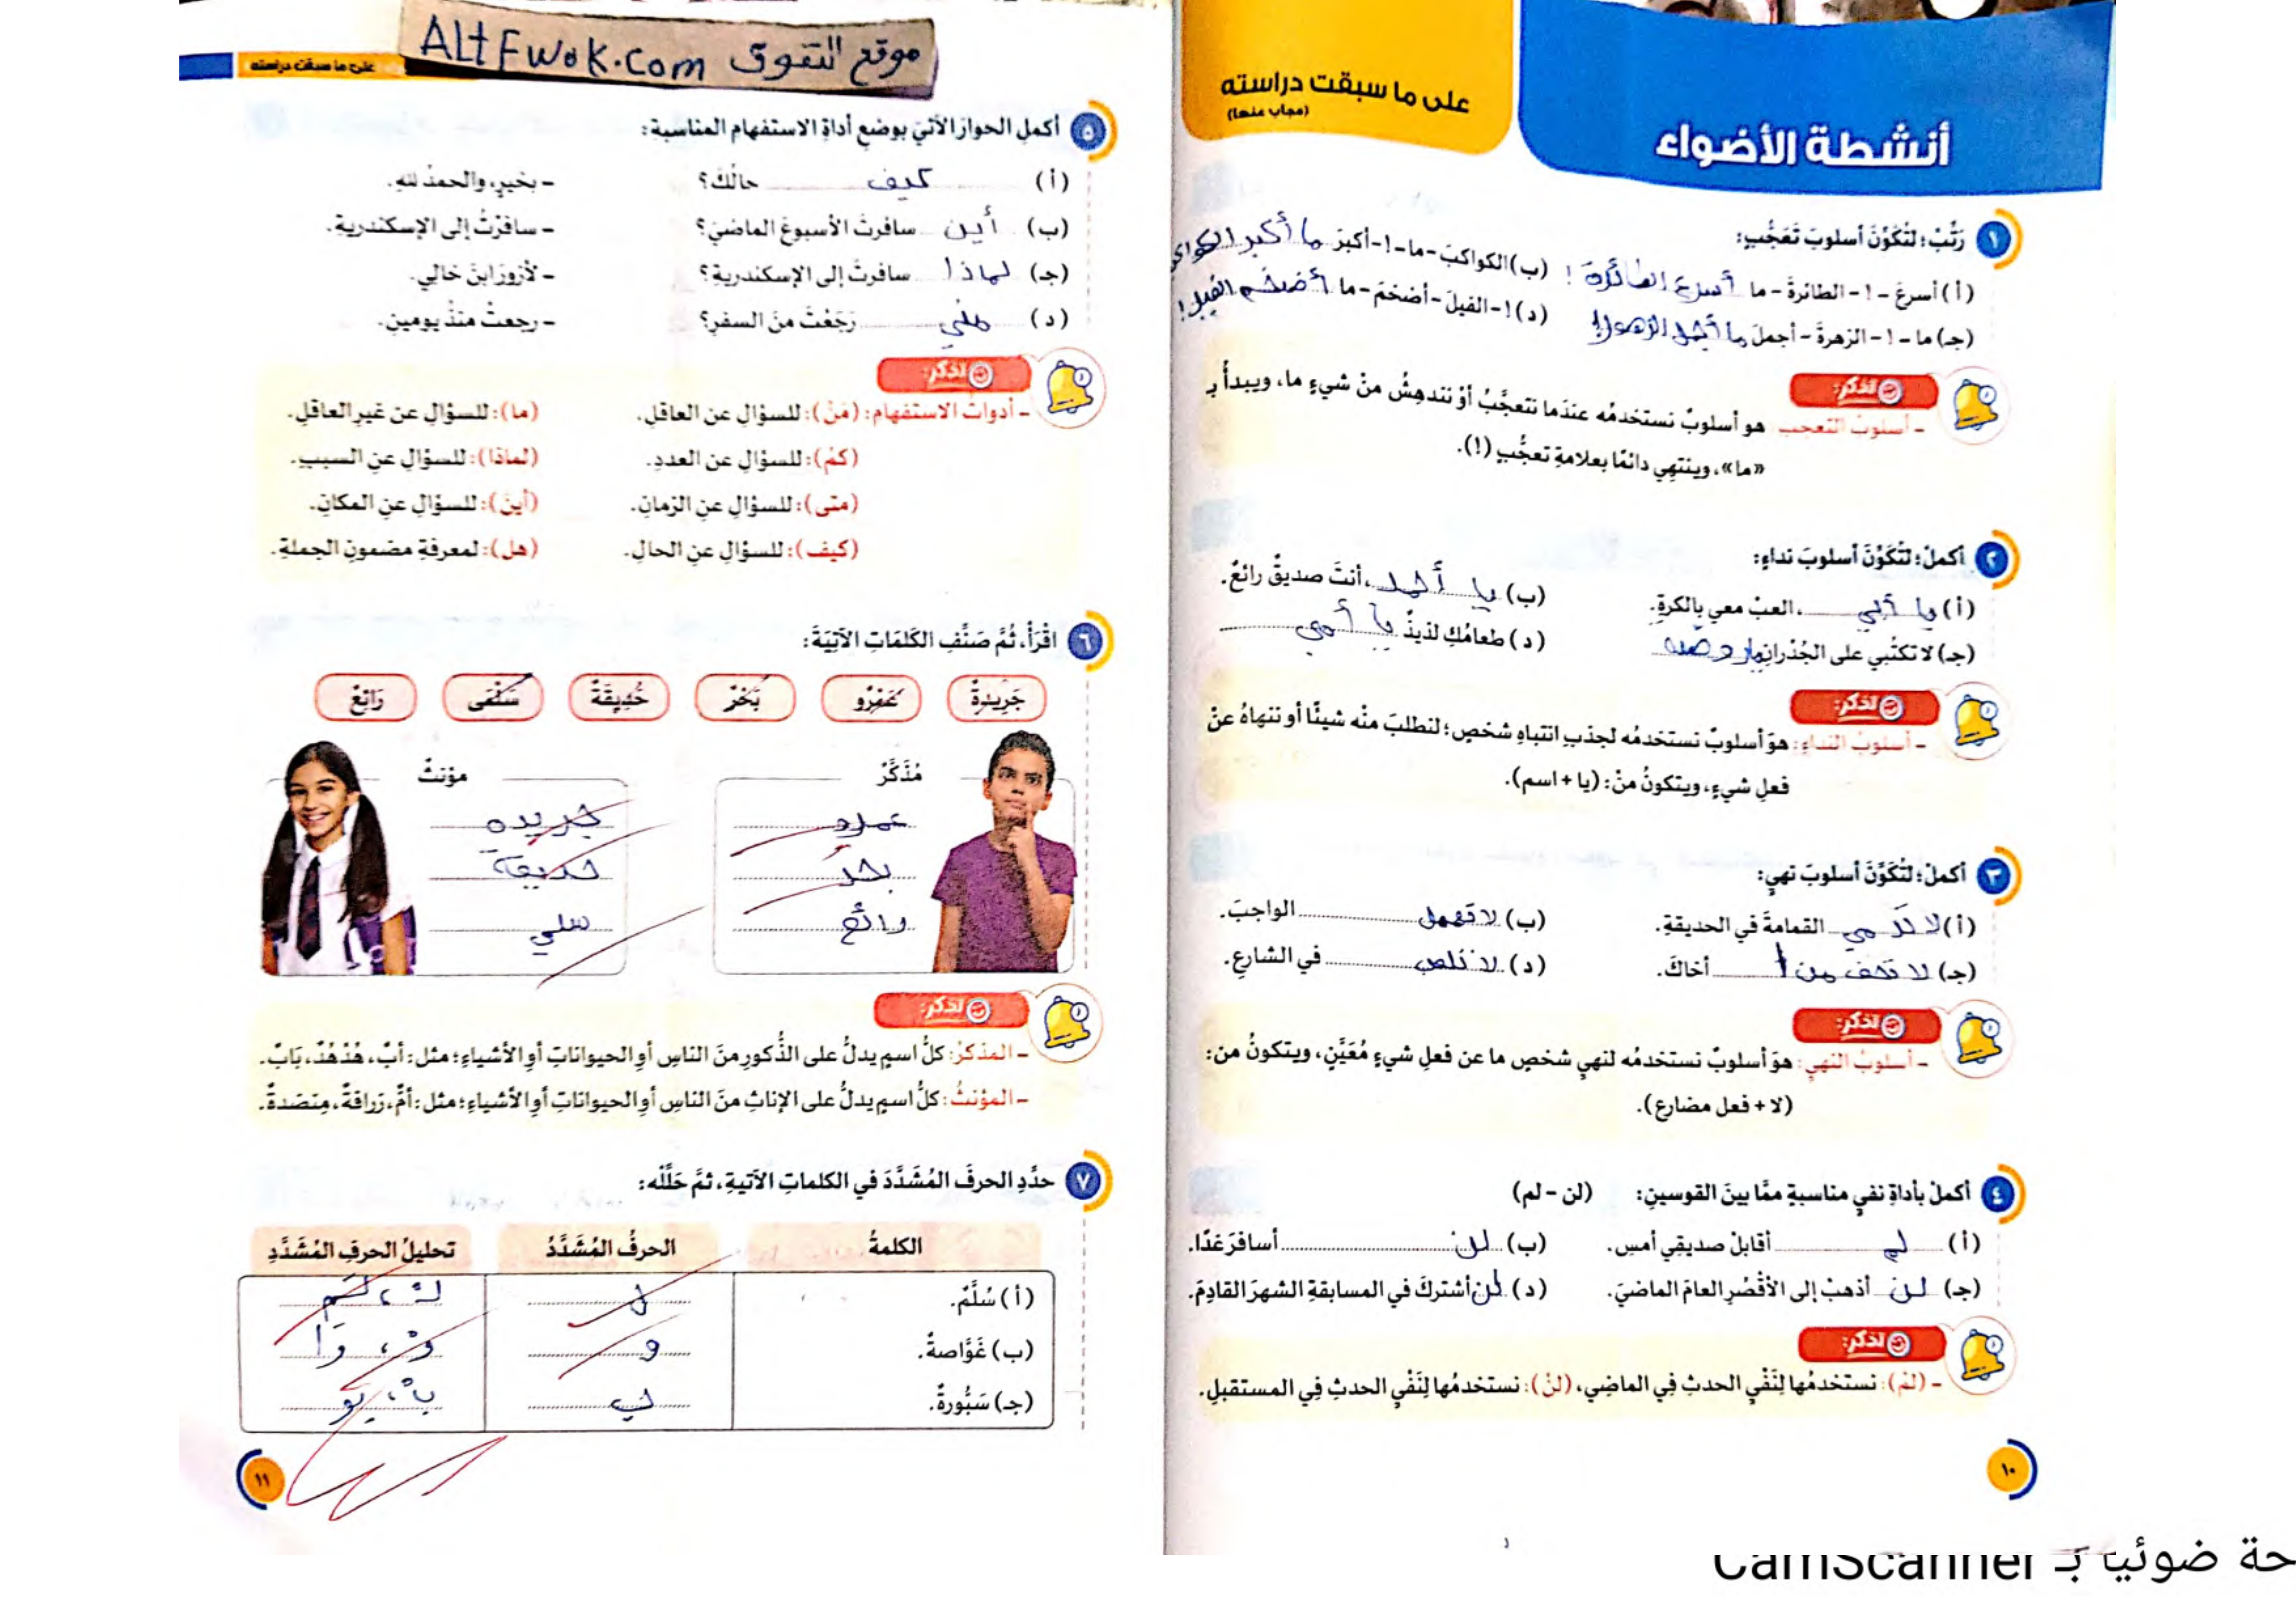 أنشطة الأضواء
على ما سبقت دراسته
(مجاب عنها)
١ رَتِّبْ؛ لتُكَوِّنَ أسلوبَ تَعَجُّبٍ:
(أ) أسرعَ - ! - الطائرةَ - ما أسرع الطائرة !
(ب) الكواكبَ - ما - ! - أكبرَ ما أكبر
(جـ) ما - ! - الزهرةَ - أجملَ ما أجمل
(د) ! - الفيلَ - أضخمَ - ما أضخم الفيل !
تذكر:
- أسلوبُ التعجب: هو أسلوبٌ نستخدمُه عندَما نتعجَّبُ أوْ نندهِشُ منْ شيءٍ ما، ويبدأُ بـ
«ما»، وينتهِي دائمًا بعلامةِ تعجُّبٍ (!).
٢ أكملْ؛ لتُكَوِّنَ أسلوبَ نداءٍ:
(أ) يا أبي، العبْ معي بالكرةِ.
(ب) يا أحمد، أنتَ صديقٌ رائعٌ.
(جـ) لا تكتُبي على الجُدْرانِ
(د) طعامُكِ لذيذٌ يا أمي
تذكر:
- أسلوبُ النداءِ: هوَ أسلوبٌ نستخدمُه لجذبِ انتباهِ شخصٍ؛ لنطلبَ منْه شيئًا أو ننهاهُ عنْ
فعلِ شيءٍ، ويتكونُ منْ: (يا + اسم).
٣ أكملْ؛ لتُكَوِّنَ أسلوبَ نهيٍ:
(أ) لا ترمي القمامةَ في الحديقةِ.
(ب) لا تهمل الواجبَ.
(جـ) لا أخاكَ.
(د) لا تلعب في الشارعِ.
تذكر:
- أسلوبُ النهيِ: هوَ أسلوبٌ نستخدمُه لنهيِ شخصٍ ما عن فعلِ شيءٍ مُعَيَّنٍ، ويتكونُ من:
(لا + فعل مضارع).
٤ أكملْ بأداةِ نفيٍ مناسبةٍ ممَّا بينَ القوسينِ: (لن - لم)
(أ) لم أقابلْ صديقِي أمسِ.
(ب) لن أسافرَ غدًا.
(جـ) لن أذهبْ إلى الأقْصُرِ العامَ الماضيَ.
(د) لن أشتركَ في المسابقةِ الشهرَ القادِمَ.
تذكر:
- (لمْ): نستخدمُها لِنَفْيِ الحدثِ فِي الماضِي، (لنْ): نستخدمُها لِنَفْيِ الحدثِ فِي المستقبلِ.
١٠
موقع التفوق ALtFwoK.com
على ما سبقت دراسته
٥ أكملِ الحوارَ الآتيَ بوضعِ أداةِ الاستفهامِ المناسبةِ:
(أ) كيف حالُكَ؟ - بخيرٍ، والحمدُ للهِ.
(ب) أين سافرتَ الأسبوعَ الماضيَ؟ - سافرْتُ إلى الإسكندريةِ.
(جـ) لماذا سافرتَ إلى الإسكندريةِ؟ - لأزورَ ابنَ خالِي.
(د) متي رَجَعْتَ منَ السفرِ؟ - رجعتُ منذُ يومينِ.
تذكر:
- أدواتُ الاستفهامِ: (مَنْ): للسؤالِ عن العاقلِ. (ما): للسؤالِ عن غيرِ العاقلِ.
(كمْ): للسؤالِ عن العددِ. (لماذا): للسؤالِ عنِ السببِ.
(متى): للسؤالِ عنِ الزمانِ. (أينَ): للسؤالِ عنِ المكانِ.
(كيفَ): للسؤالِ عنِ الحالِ. (هل): لمعرفةِ مضمونِ الجملةِ.
٦ اقْرَأْ، ثُمَّ صَنِّفِ الكَلِمَاتِ الآتِيَةَ:
جَرِيدةٌ عَمْرٌو بَحْرٌ حَدِيقَةٌ سَلْمَى رَائِعٌ
مُذَكَّرٌ مؤنثٌ
عمرو جريده
بحر حديقة
رائع سلمي
تذكر:
- المذكرُ: كلُّ اسمٍ يدلُّ على الذُّكورِ منَ الناسِ أوِ الحيواناتِ أوِ الأشياءِ؛ مثل: أبٌ، هُدْهُدٌ، بَابٌ.
- المؤنثُ: كلُّ اسمٍ يدلُّ على الإناثِ منَ الناسِ أوِ الحيواناتِ أوِ الأشياءِ؛ مثل: أمٌّ، زرافةٌ، مِنضَدةٌ.
٧ حدِّدِ الحرفَ المُشَدَّدَ في الكلماتِ الآتيةِ، ثمَّ حَلِّلْه:
الكلمةُ الحرفُ المُشَدَّدُ تحليلُ الحرفِ المُشَدَّدِ
(أ) سُلَّمٌ. ل
(ب) غَوَّاصةٌ. و وْ، وَا
(جـ) سَبُّورةٌ. ب بْ، بُو
١١